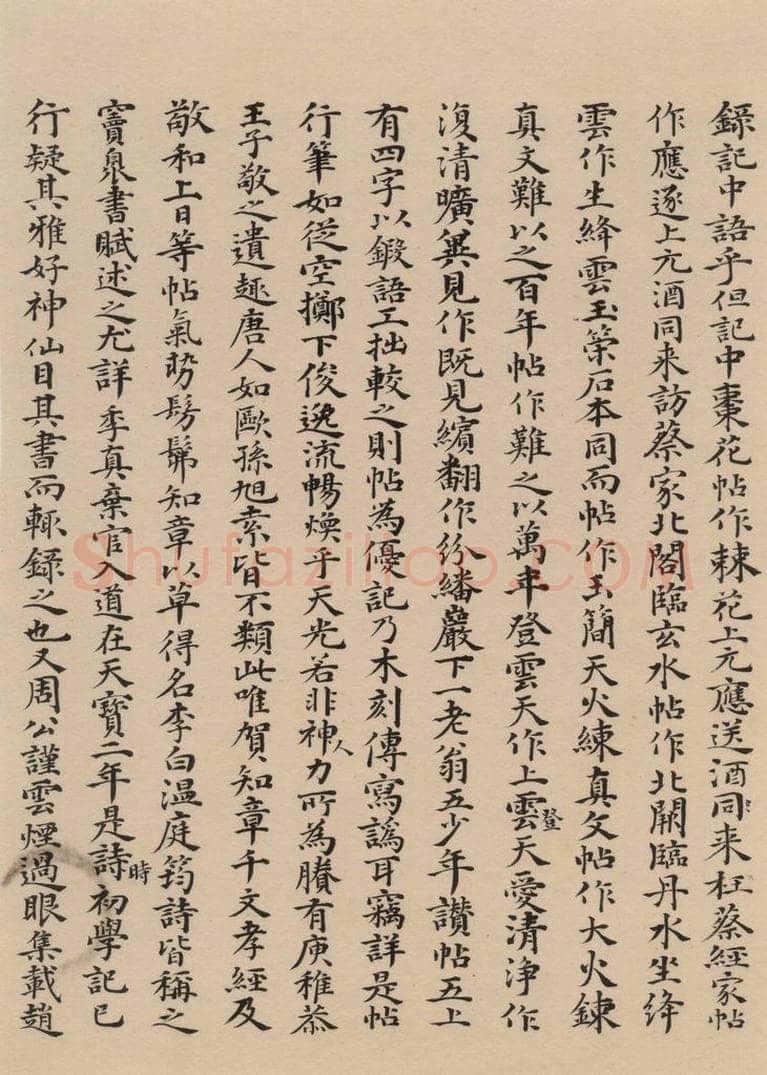 錄記中語乎但記中棗花帖作棘花上元應送酒同来枉蔡經家帖
作應逐上元酒同来訪蔡家北閣臨玄水帖作北闕臨丹水坐絳
雲作生絳雲玉策石本同而帖作玉簡天火練真文帖作大火鍊
真文難以之百年帖作難之以萬年登雲天作上雲天愛清浄作
登
復清曠巽見作既見繽翻作紛繙巖下一老翁五少年讚帖五上
有四字以鍛語工拙較之則帖為優記乃木刻傳寫譌耳竊詳是帖
行筆如從空擲下俊逸流暢煥乎天光若非神力所為賸有庾稚恭
人
王子敬之遺趣唐人如歐孫旭素皆不類此唯賀知章千文孝經及
敬和上日等帖氣勢髣髴知章以草得名李白温庭筠詩皆稱之
竇臮書賦述之尤詳季真棄官入道在天寶二年是詩初學記已
時
行疑其雅好神仙目其書而輙錄之也又周公謹雲煙過眼集載趙
Shufaziliao.COM